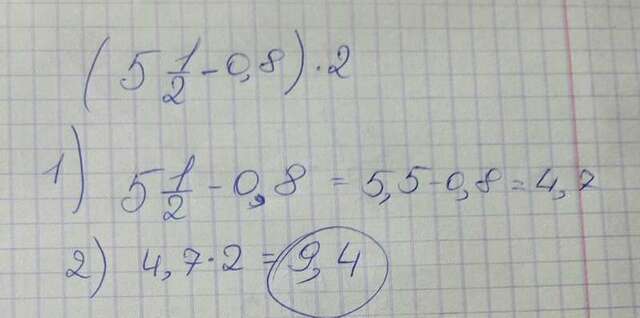 (5 1/2 - 0,8) · 2
1) 5 1/2 - 0,8 = 5,5 - 0,8 = 4,7
2) 4,7 · 2 = 9,4